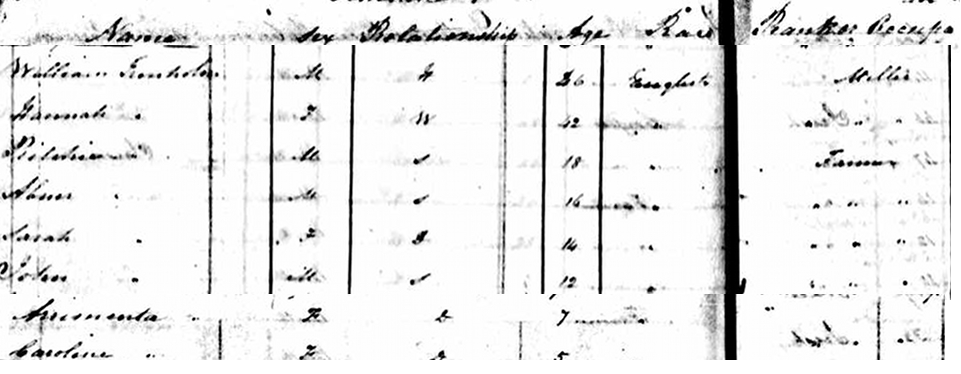 Name Sex Relationship Age Race Rank or Occupa
William Trenholm M H English Miller
Hannah " F W 42 " " "
M S 18 " Farmer
Abner " M S 16 " " " "
Sarah " F D 14 " " " "
John " M S 12 " " " "
Arrimenta " F D 7
Caroline " F D 5